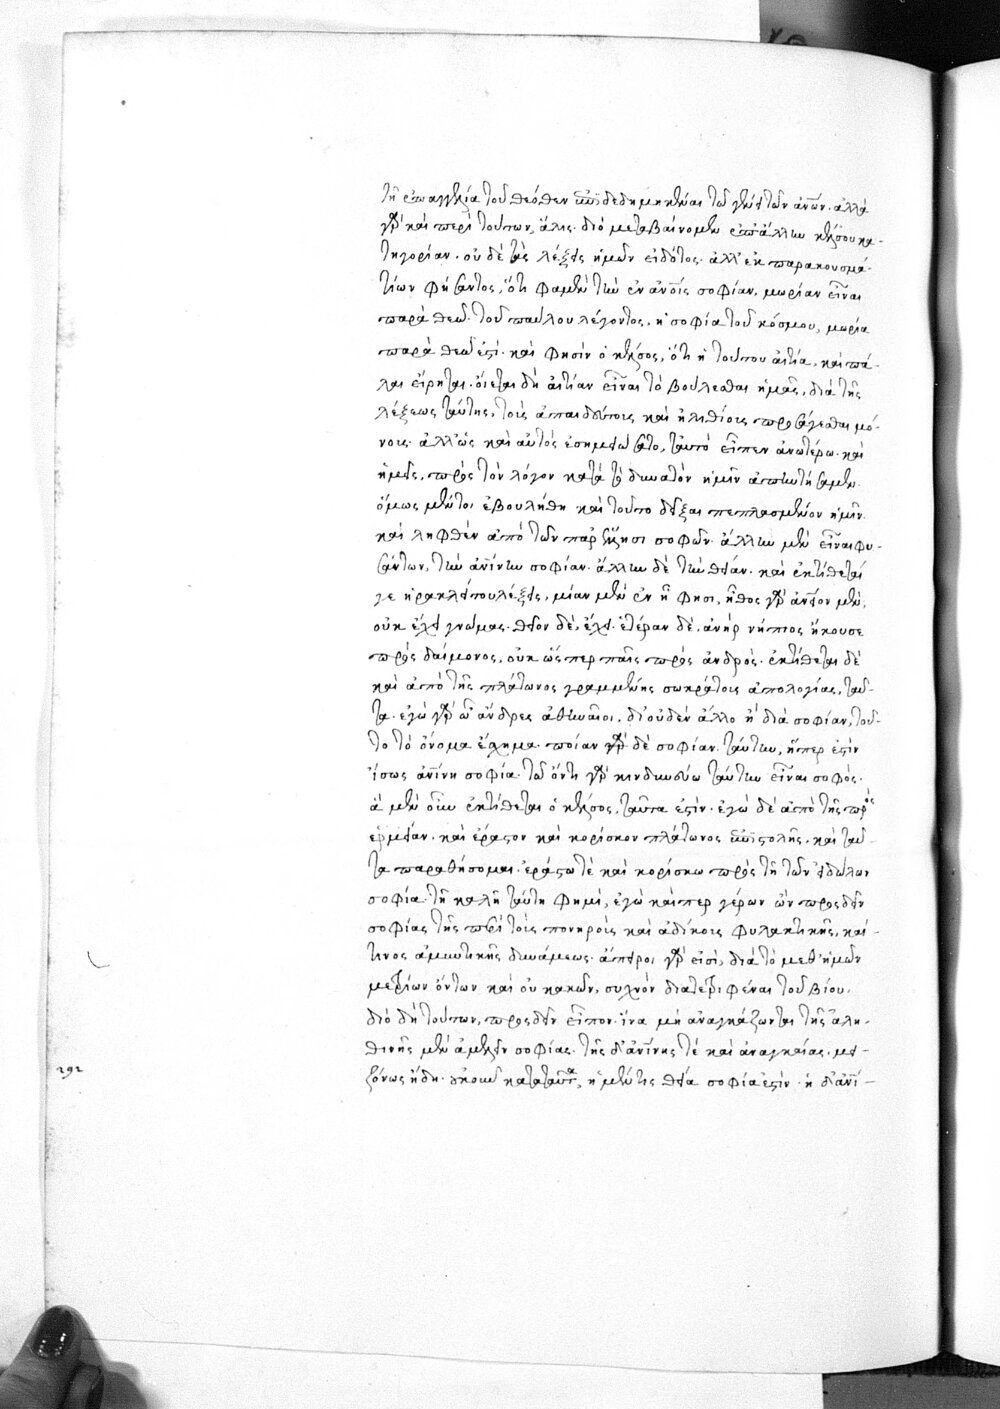 τῇ ἐπαγγελία τοῦ θεόθεν ἐπιδεδημηκέναι τῷ γένει τῶν ἀνων. ἀλλὰ
γὰρ καὶ περὶ τούτων, ἅλις. διὸ μεταβαίνομεν ἐπ' ἄλλην κέλσου κα-
τηγορίαν. οὐδὲ τὰς λέξεις ἡμῶν εἰδότος. ἀλλ' ἐκ παρακουσμά-
των φήσαντος, ὅτι φαμὲν τὴν ἐν ἀνοις σοφίαν, μωρίαν εἶναι
παρὰ θεῷ. τοῦ παύλου λέγοντος, ἡ σοφία τοῦ κόσμου, μωρία
παρὰ θεῷ ἐστί. καὶ φησὶν ὁ κέλσος, ὅτι ἡ τούτου αἰτία, καὶ πά-
λαι εἴρηται. οἴεται δὴ αἰτίαν εἶναι τὸ βούλεσθαι ἡμᾶς, διὰ τῆς
λέξεως ταύτης, τοὺς ἀπαιδεύτους καὶ ἠλιθίους προσάγεσθαι μό-
νους. ἀλλ' ὡς καὶ αὐτὸς ἐσημειώσατο, ταυτὸ εἶπεν ἀνωτέρω. καὶ
ἡμεῖς, πρὸς τὸν λόγον κατὰ τὸ δυνατὸν ἡμῖν ἀπηντήσαμεν.
ὅμως μέντοι ἐβουλήθη καὶ τοῦτο δεῖξαι πεπλασμένον ἡμῖν.
καὶ ληφθὲν ἀπὸ τῶν παρ' ἕλλησι σοφῶν. ἄλλην μὲν εἶναι φη-
σάντων, τὴν ἀνίνην σοφίαν. ἄλλην δὲ τὴν θείαν. καὶ ἐκτίθεταί
γε ἡρακλείτου λέξεις, μίαν μὲν ἐν ᾗ φησι, ἦθος γὰρ ἀνειον μὲν,
οὐκ ἔχει γνώμας. θεῖον δὲ, ἔχει. ἑτέραν δὲ, ἀνὴρ νήπιος ἤκουσε
πρὸς δαίμονος, οὐκ ὥσπερ παῖς πρὸς ἀνδρός. ἐκτίθεται δὲ
καὶ ἀπὸ τῆς πλάτωνος γραμμένης σωκράτους ἀπολογίας, ταῦ-
τα. ἐγὼ γὰρ ὦ ἄνδρες ἀθηναῖοι, δι' οὐδὲν ἄλλο ἢ διὰ σοφίαν, τοῦ-
το τὸ ὄνομα ἔσχημα. ποίαν γὰρ δὲ σοφίαν. ταύτην, ἥπερ ἐστὶν
ἴσως ἀνίνη σοφία. τῷ ὄντι γὰρ κινδυνεύω ταύτην εἶναι σοφός.
ἃ μὲν οὖν ἐκτίθεται ὁ κέλσος, ταῦτα ἐστίν. ἐγὼ δὲ ἀπὸ τῆς πρὸς
ἑρμείαν. καὶ ἔραστον καὶ κορίσκον πλάτωνος ἐπιστολῆς, καὶ ταῦ-
τα παραθήσομαι. ἐράστῳ τὲ καὶ κορίσκῳ πρὸς τῇ τῶν εἰδώλων
σοφία. τῇ καλῇ ταύτῃ φημὶ, ἐγὼ καίπερ γέρων ὢν προσδεῖν
σοφίας τῆς περὶ τοὺς πονηροὺς καὶ ἀδίκους φυλακτικῆς, καί
τινος ἀμυντικῆς δυνάμεως. ἄπειροι γὰρ εἰσὶ, διὰ τὸ μεθ' ἡμῶν
μετρίων ὄντων καὶ οὐ κακῶν, συχνὸν διατετριφέναι τοῦ βίου.
διὸ δὴ τούτων, προσδεῖν εἶπον. ἵνα μὴ ἀναγκάζωνται τῆς ἀλη-
θινῆς μὲν ἀμελεῖν σοφίας. τῆς δ' ἀνίνης τὲ καὶ ἀναγκαίας, μει-
ζόνως ἤδη. οὐκοῦν κατὰ ταῦτα, ἡ μέν τις θεία σοφία ἐστὶν. ἡ δ' ἀνί-
292